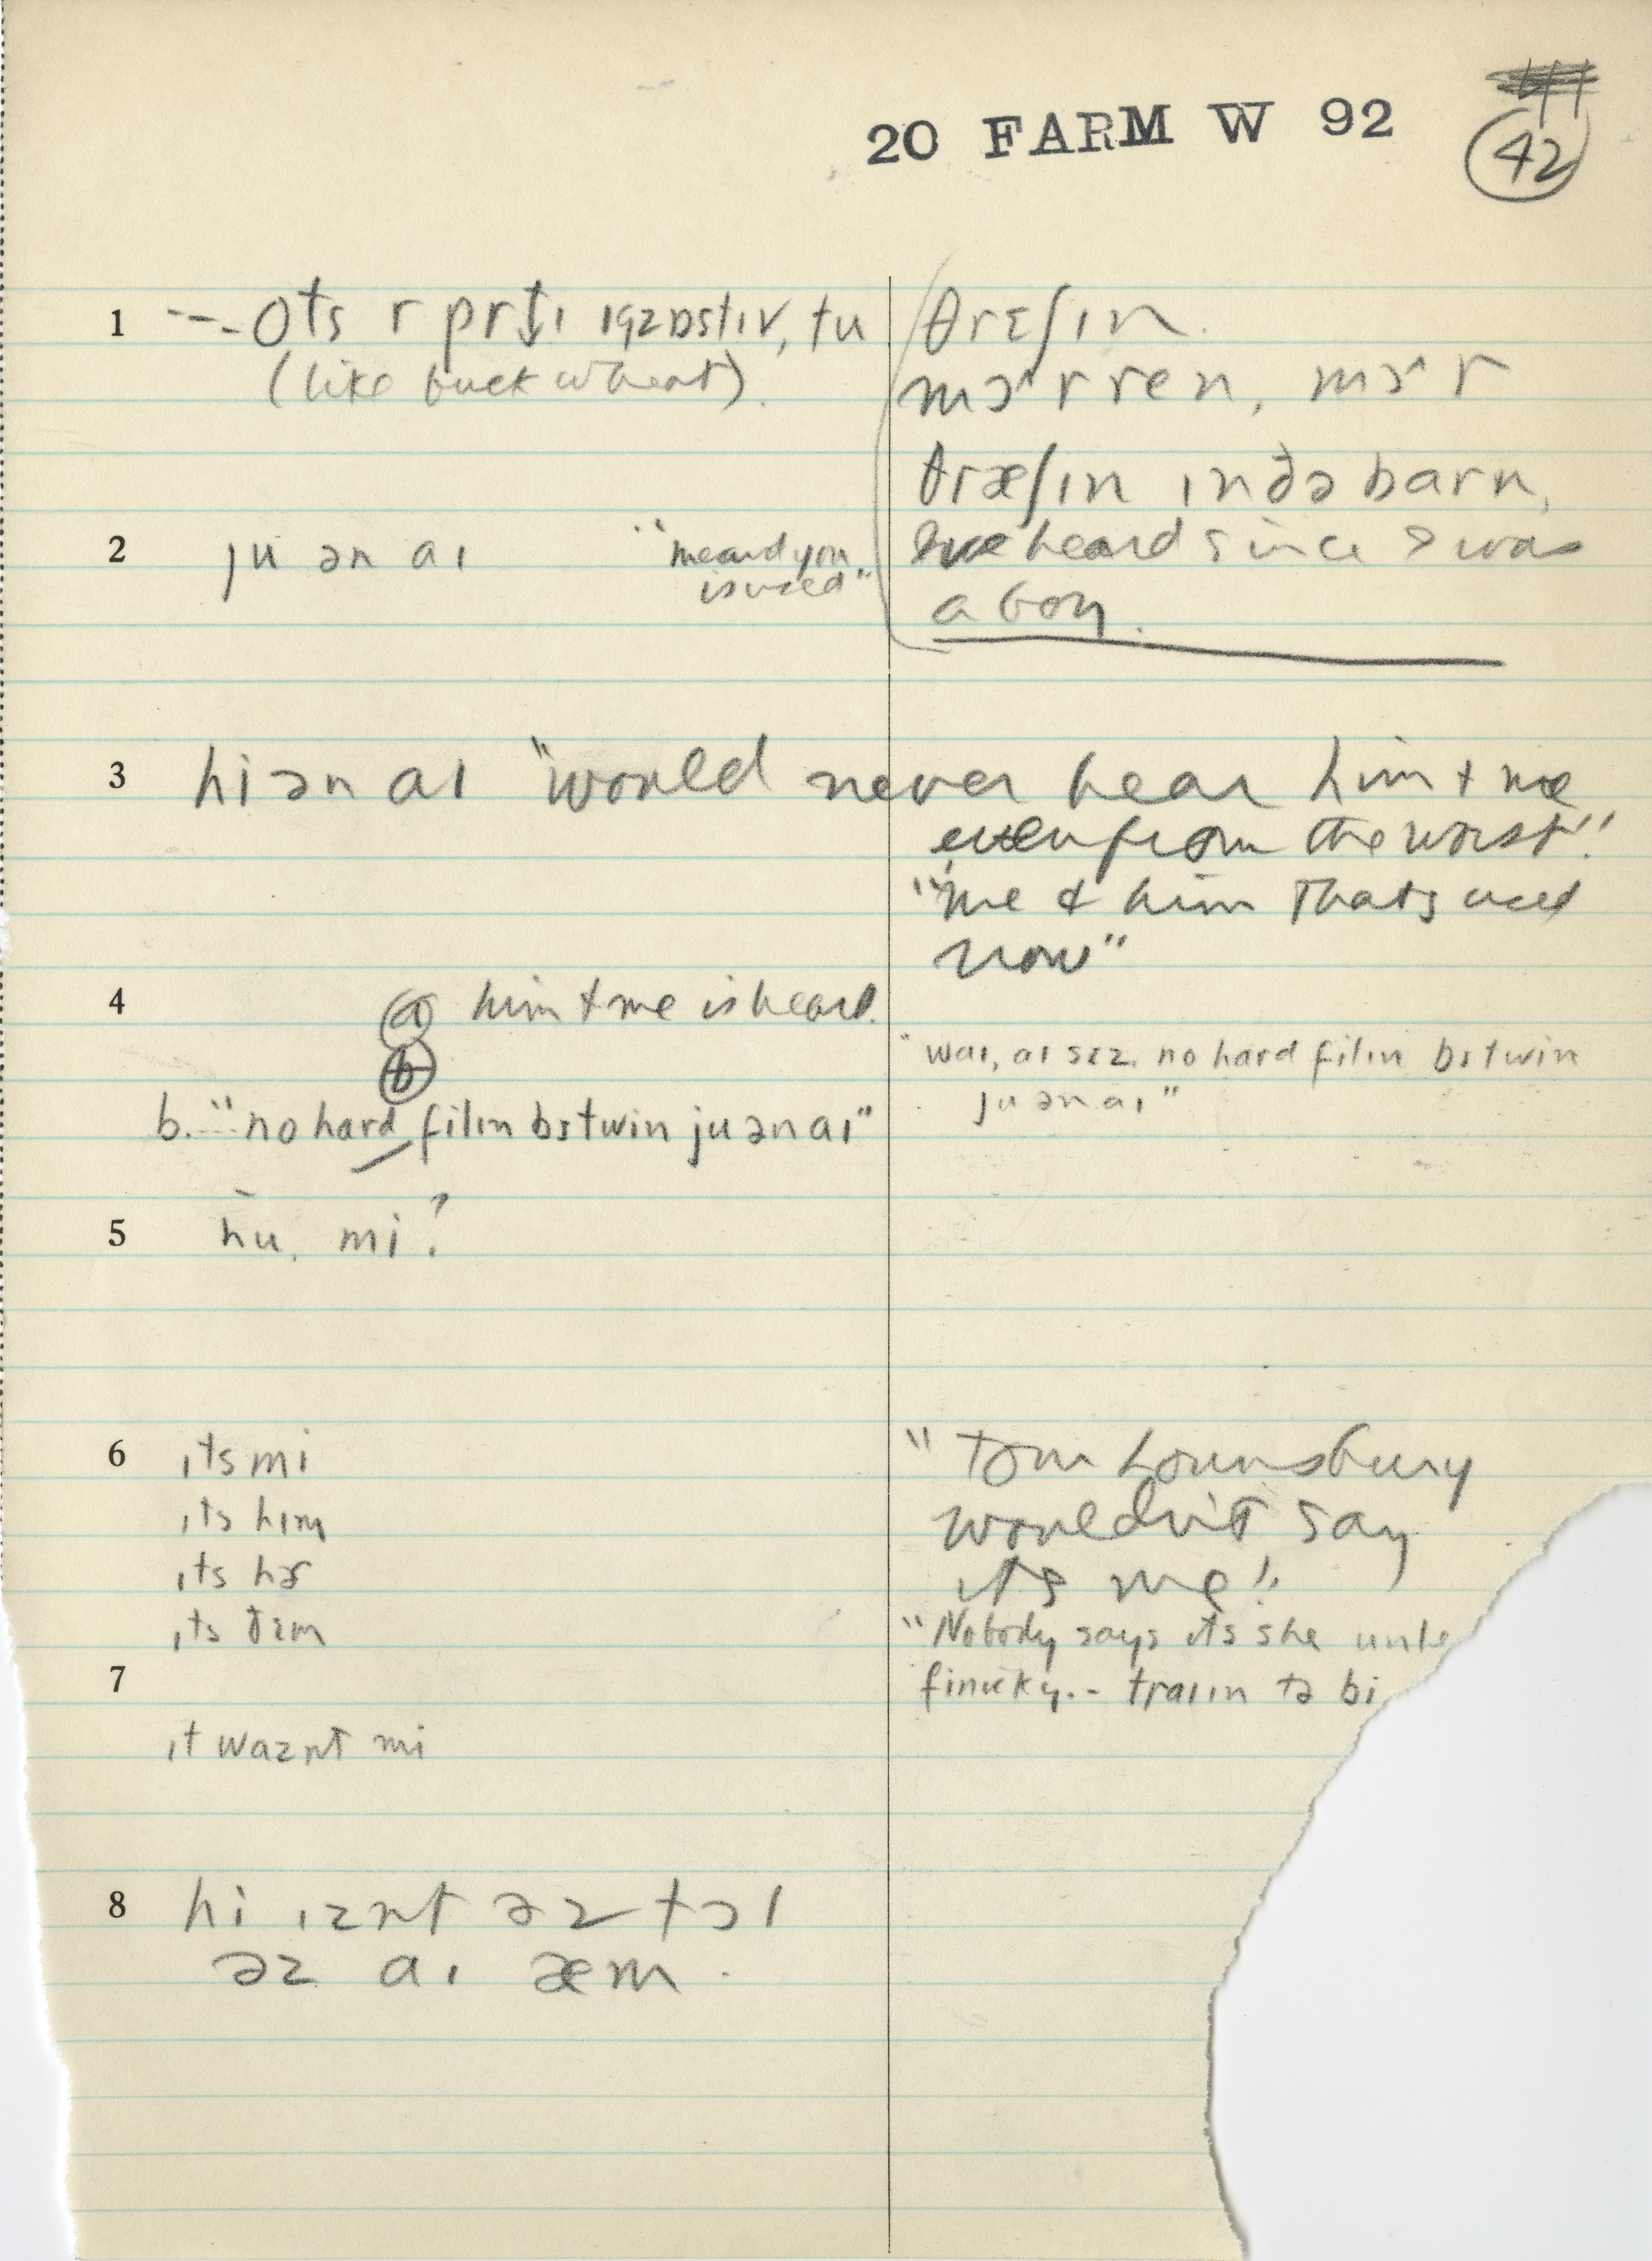 20 FARM W 92
42
1 --- ots r prti ɪgzɒstɪv, tu
(like buckwheat).
θrɛʃɪn.
mɔr ren, mɔr
θræʃɪn ɪn ðə barn,
heard since I was
a boy.
2 ju ən aɪ
"me and you
is used"
3 hi ən aɪ "would never hear him + me
even from the worst"
"me & him Thats used
now"
4 ⓐ him + me is heard.
ⓑ
b. --- "no hard filɪn bɪtwin ju ən aɪ"
"waɪ, aɪ sɛz no hard filɪn bɪtwin
ju ən aɪ"
5 hu, mi?
6 ɪts mi
ɪts hɪm
ɪts hɚ
ɪts ðɛm
"Tom Lounsbury
wouldn't say
its me".
"Nobody says its she unle
finicky.- traɪɪn tə bi
7
ɪt waznt mi
8 hi ɪznt əz tɔl
əz aɪ æm.